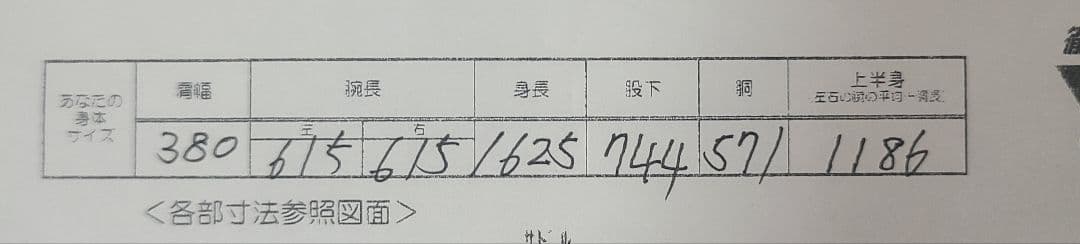 あなたの
身体
サイズ
肩幅
腕長
身長
股下
胴
上半身
左右の腕の平均+胴長
左
右
380
615
615
1625
744
571
1186
<各部寸法参照図面>
サドル